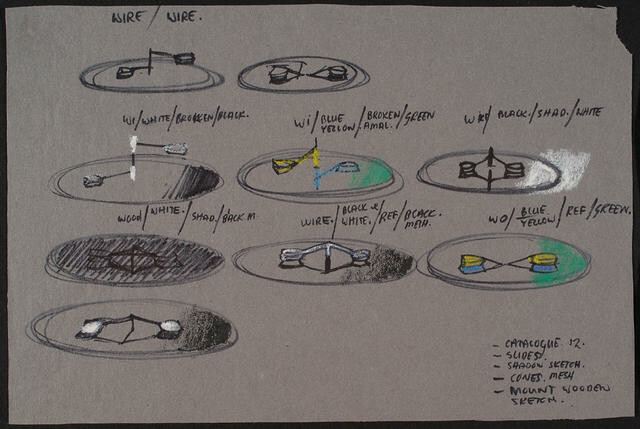 WIRE / WIRE.
W/ WHITE / BROKEN / BLACK.
W/ BLUE / BROKEN / GREEN
YELLOW / AMAL.
BLACK. / SHAD. / WHITE
WOOD / WHITE. / SHAD /
WIRE. / BLACK & / REF / BLACK.
WHITE. / MESH.
WO / BLUE / REF / GREEN.
YELLOW
- CATALOGUE 12.
- SLIDES.
- SHADOW SKETCH.
- CONES. MESH
- MOUNT WOODEN
SKETCH.